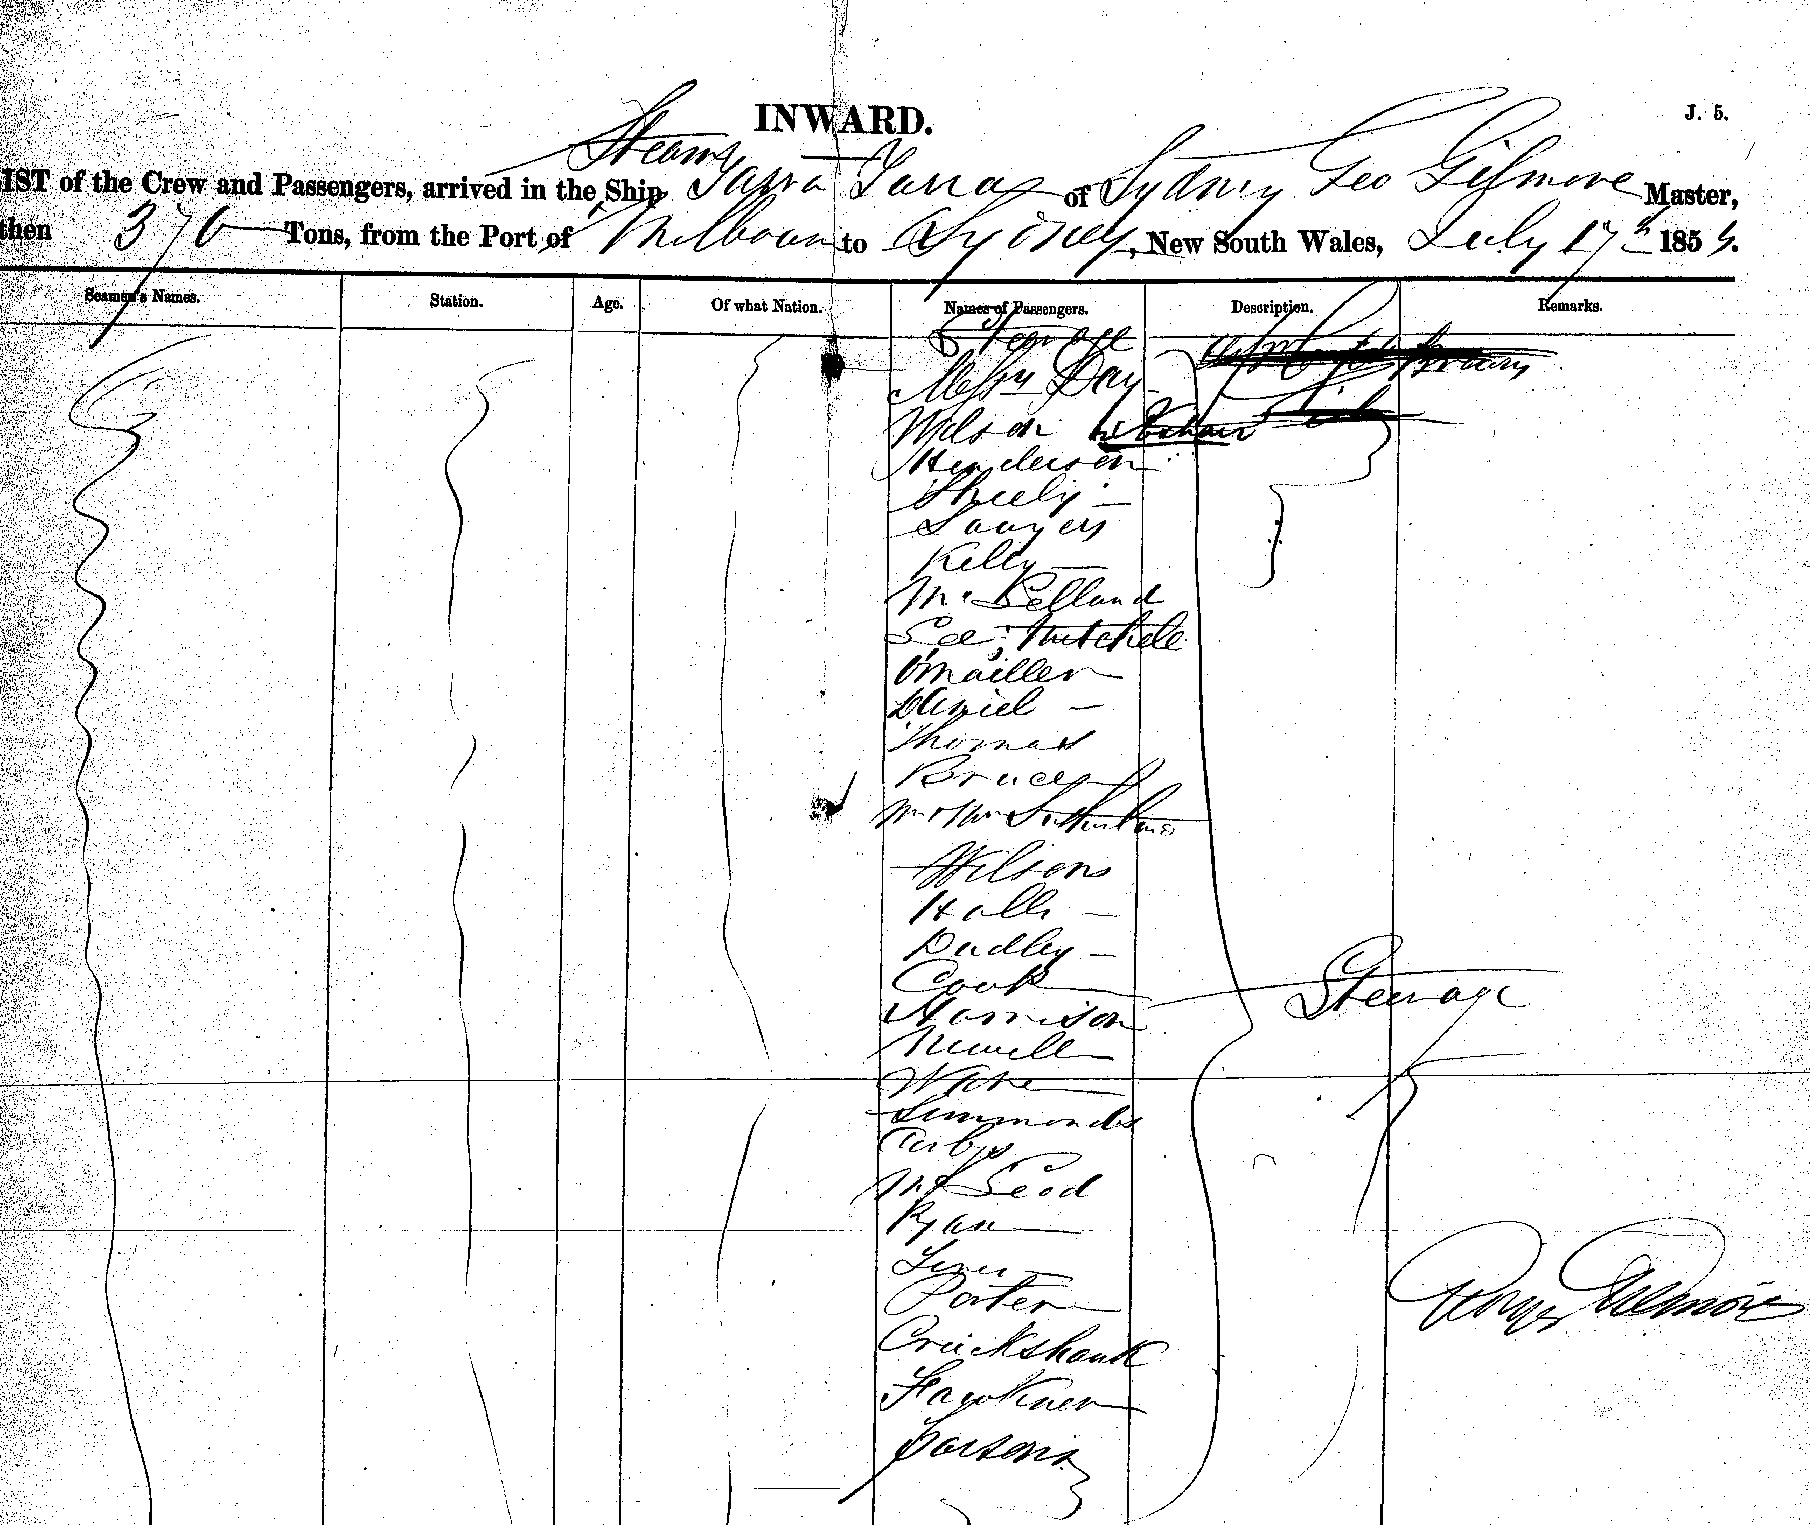 INWARD.
J. 5.
Steamer
IST of the Crew and Passengers, arrived in the Ship Yarra Yarra of Sydney Geo Gilmore Master,
then 370 Tons, from the Port of Melbourn to Sydney, New South Wales, July 17th 185
Seamen's Names. Station. Age. Of what Nation. Names of Passengers. Description. Remarks.
Steerage
Messrs Day
Wilson
Henderson
Sheely
Sawyers
Kelly
Mc Lelland
Lee; Mitchele
Omailler
Daniel
Thomas
Bruce
Mr & Mrs
Wilsons
Halls
Dudley
Cook
Harrison
Steerage
Newell
Simmonds
Mc Leod
Ryan
Porter
George Gilmore
Cruickshank
Fawkner
Parsons